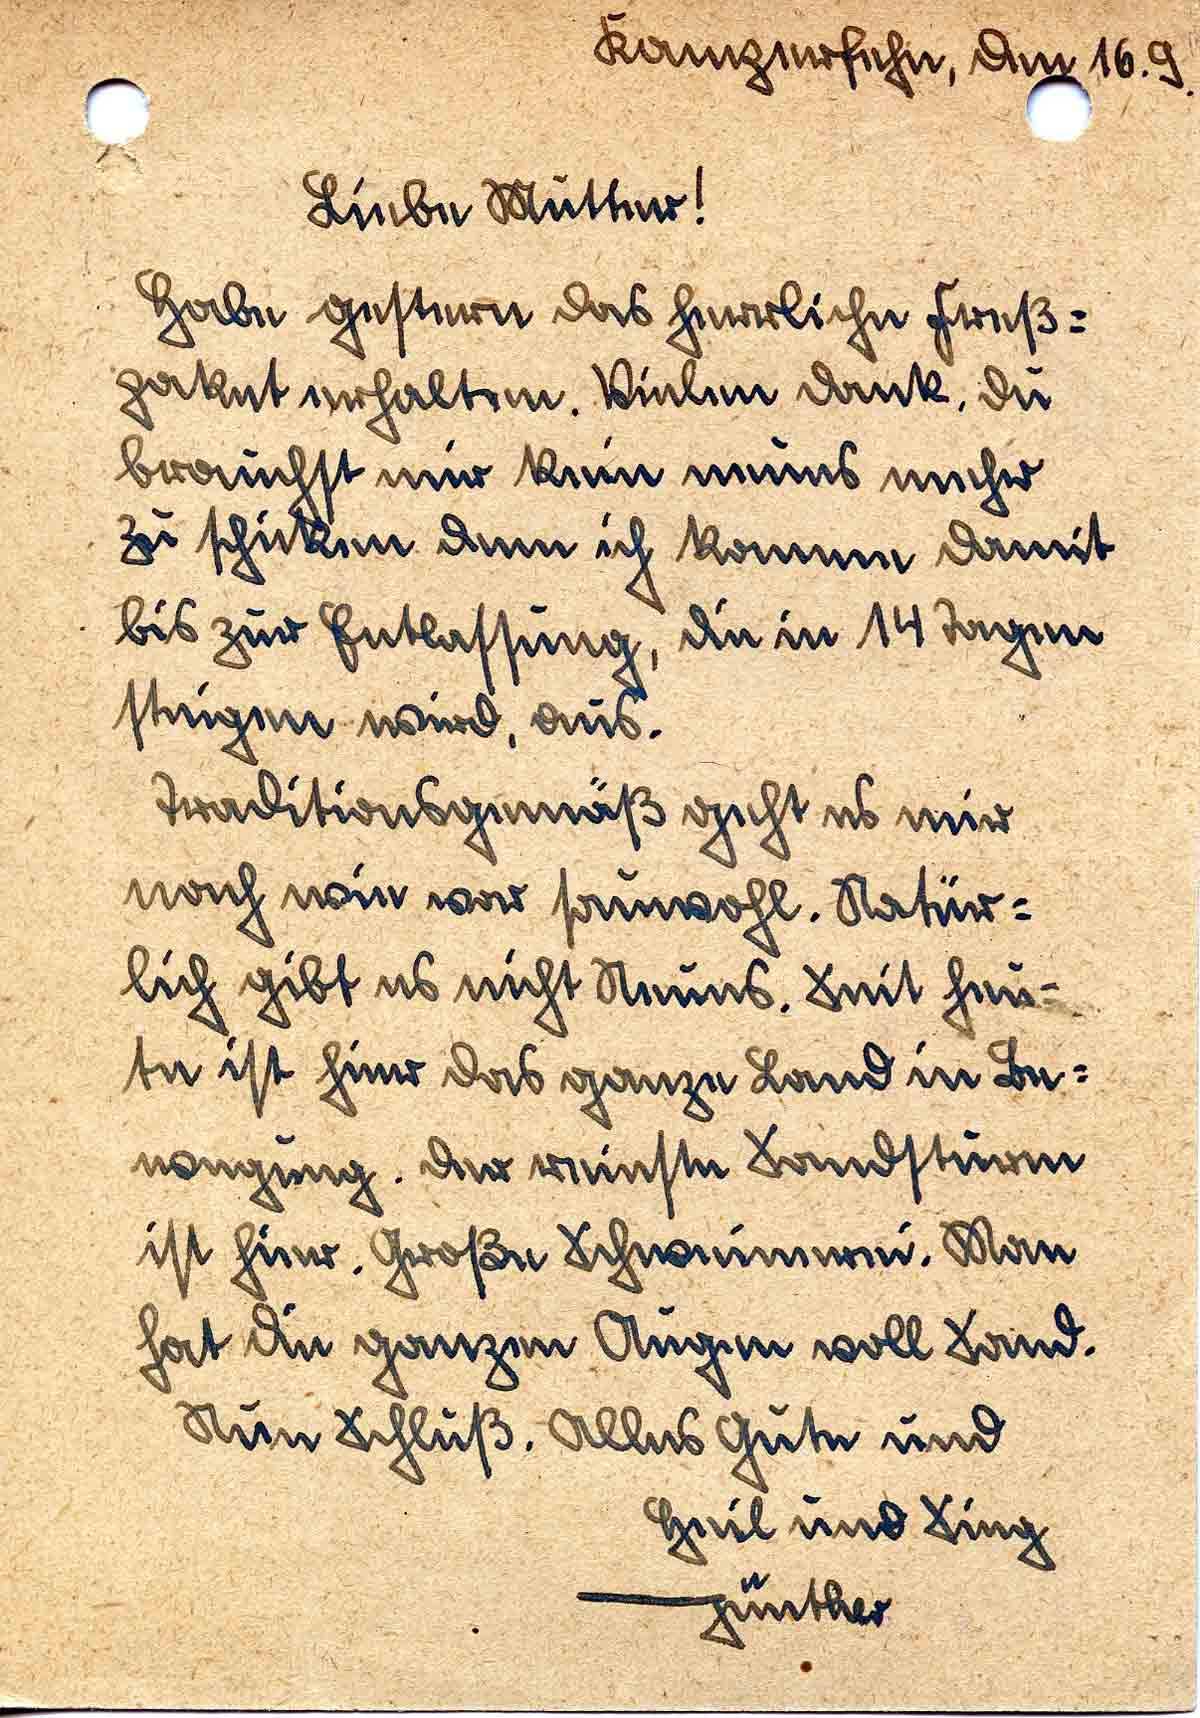 Kamperfehn, den 16.9.
Liebe Mutter!
Habe gestern das herrliche Freß=
paket erhalten. Vielen Dank. Du
brauchst mir kein neues mehr
zu schicken denn ich komme damit
bis zur Entlassung, die in 14 Tagen
steigen wird, aus.
Traditionsgemäß geht es mir
noch wie vor sauwohl. Natür=
lich gibt es nicht Neues. Seit heu-
te ist hier das ganze Land in Be=
wegung. Der reinste Sandsturm
ist hier. Große Schweinerei. Man
hat die ganzen Augen voll Sand.
Nun Schluß. Alles Gute und
Heil und Sieg
Günther